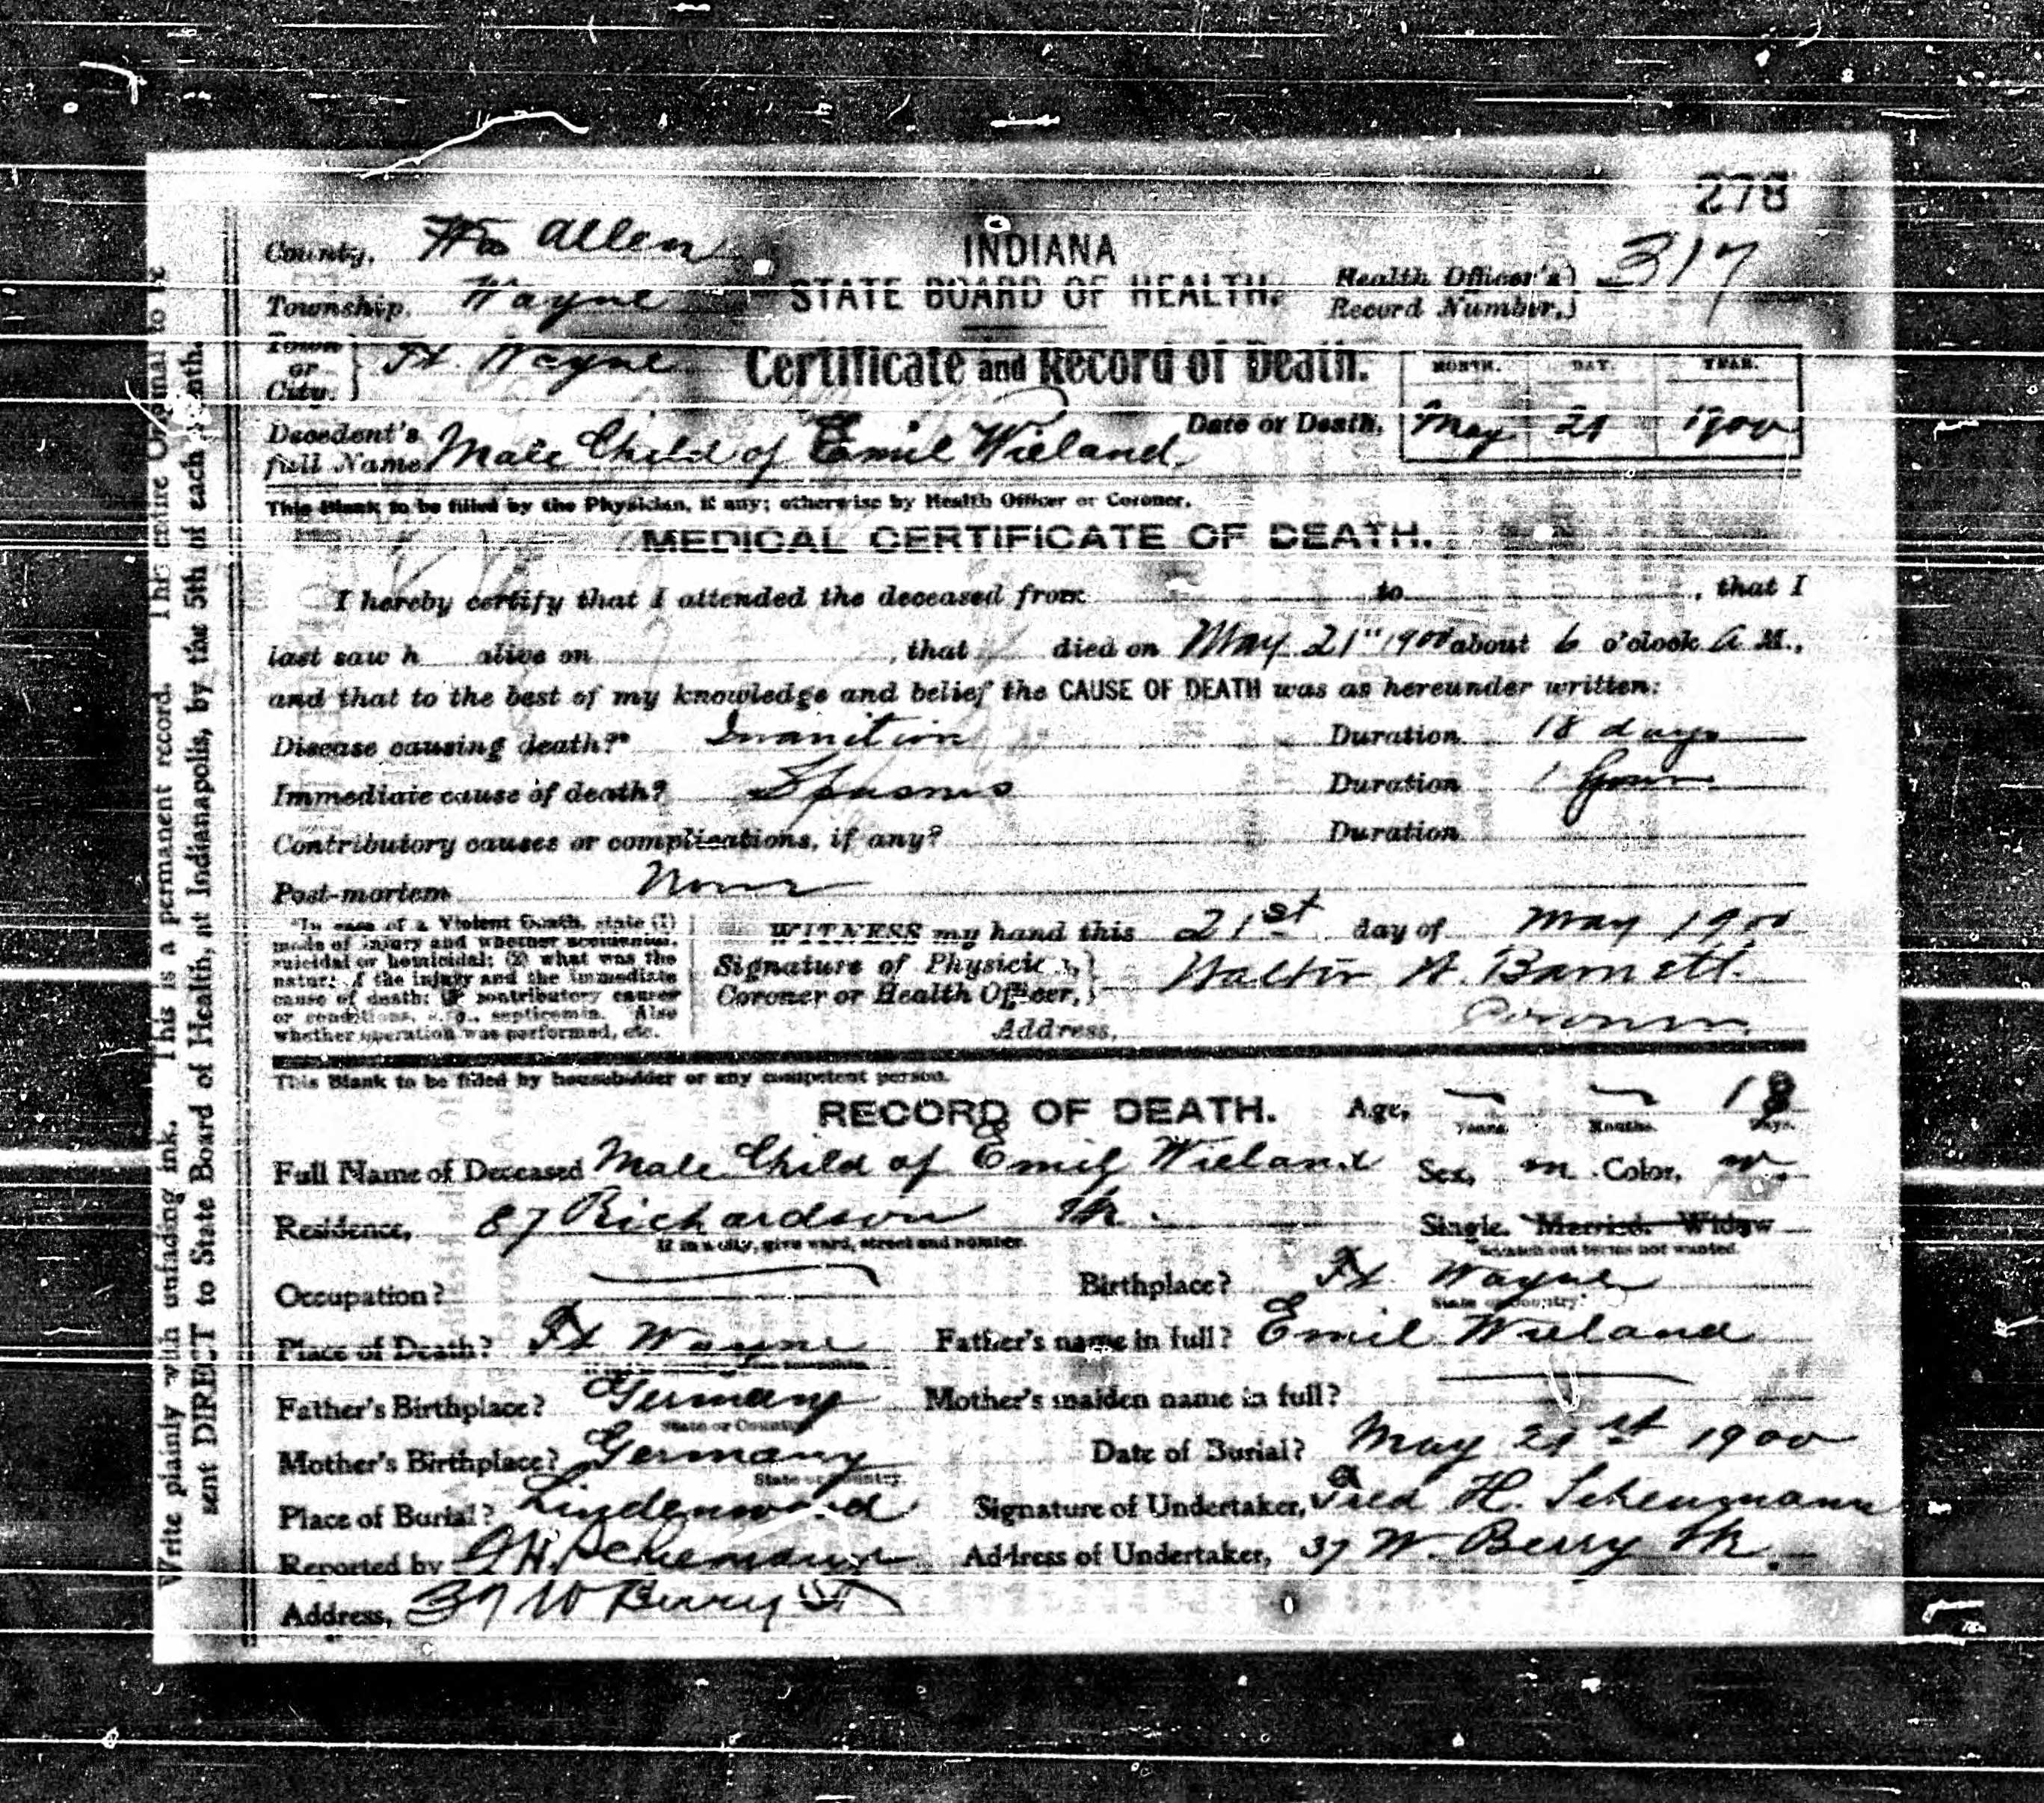 278
County, Allen
INDIANA
STATE BOARD OF HEALTH.
Health Officer's
Record Number, 317
Township, Wayne
Town
or
City. Ft. Wayne
Certificate and Record of Death.
MONTH. DAY. YEAR.
Decedent's
full Name, Male Child of Emil Wieland
Date of Death, May 21 1900
This Blank to be filled by the Physician, if any; otherwise by Health Officer or Coroner.
MEDICAL CERTIFICATE OF DEATH.
I hereby certify that I attended the deceased from to , that I
last saw h alive on , that died on May 21" 1900 about 6 o'clock A M.,
and that to the best of my knowledge and belief the CAUSE OF DEATH was as hereunder written:
Disease causing death?* Inanition Duration 18 days
Immediate cause of death? Spasms Duration 1 hour
Contributory causes or complications, if any? Duration
Post-mortem None
*In case of a Violent Death, state (1)
mode of injury and whether accidental,
suicidal or homicidal; (2) what was the
nature of the injury and the immediate
cause of death; contributory causes
or conditions, e.g., septicemia. Also
whether operation was performed, etc.
WITNESS my hand this 21st day of May 1900
Signature of Physician,
Coroner or Health Officer, Walter A. Barnett
Coroner
Address,
This Blank to be filled by householder or any competent person.
RECORD OF DEATH. Age, 18
Years. Months. Days.
Full Name of Deceased Male Child of Emil Wieland Sex, m Color, w.
Residence, 87 Richardson St. Single. Married. Widow
If in a city, give ward, street and number. Scratch out terms not wanted.
Occupation? Birthplace? Ft Wayne
State or Country.
Place of Death? Ft Wayne Father's name in full? Emil Wieland
Father's Birthplace? Germany Mother's maiden name in full?
State or Country
Mother's Birthplace? Germany Date of Burial? May 21st 1900
State or Country
Place of Burial? Lindenwood Signature of Undertaker, Fred H. Scheumann
Reported by Address of Undertaker, 37 W. Berry St.
Address, 37 W Berry St
Write plainly with unfading ink. This is a permanent record. The entire Original to be
sent DIRECT to State Board of Health, at Indianapolis, by the 5th of each month.